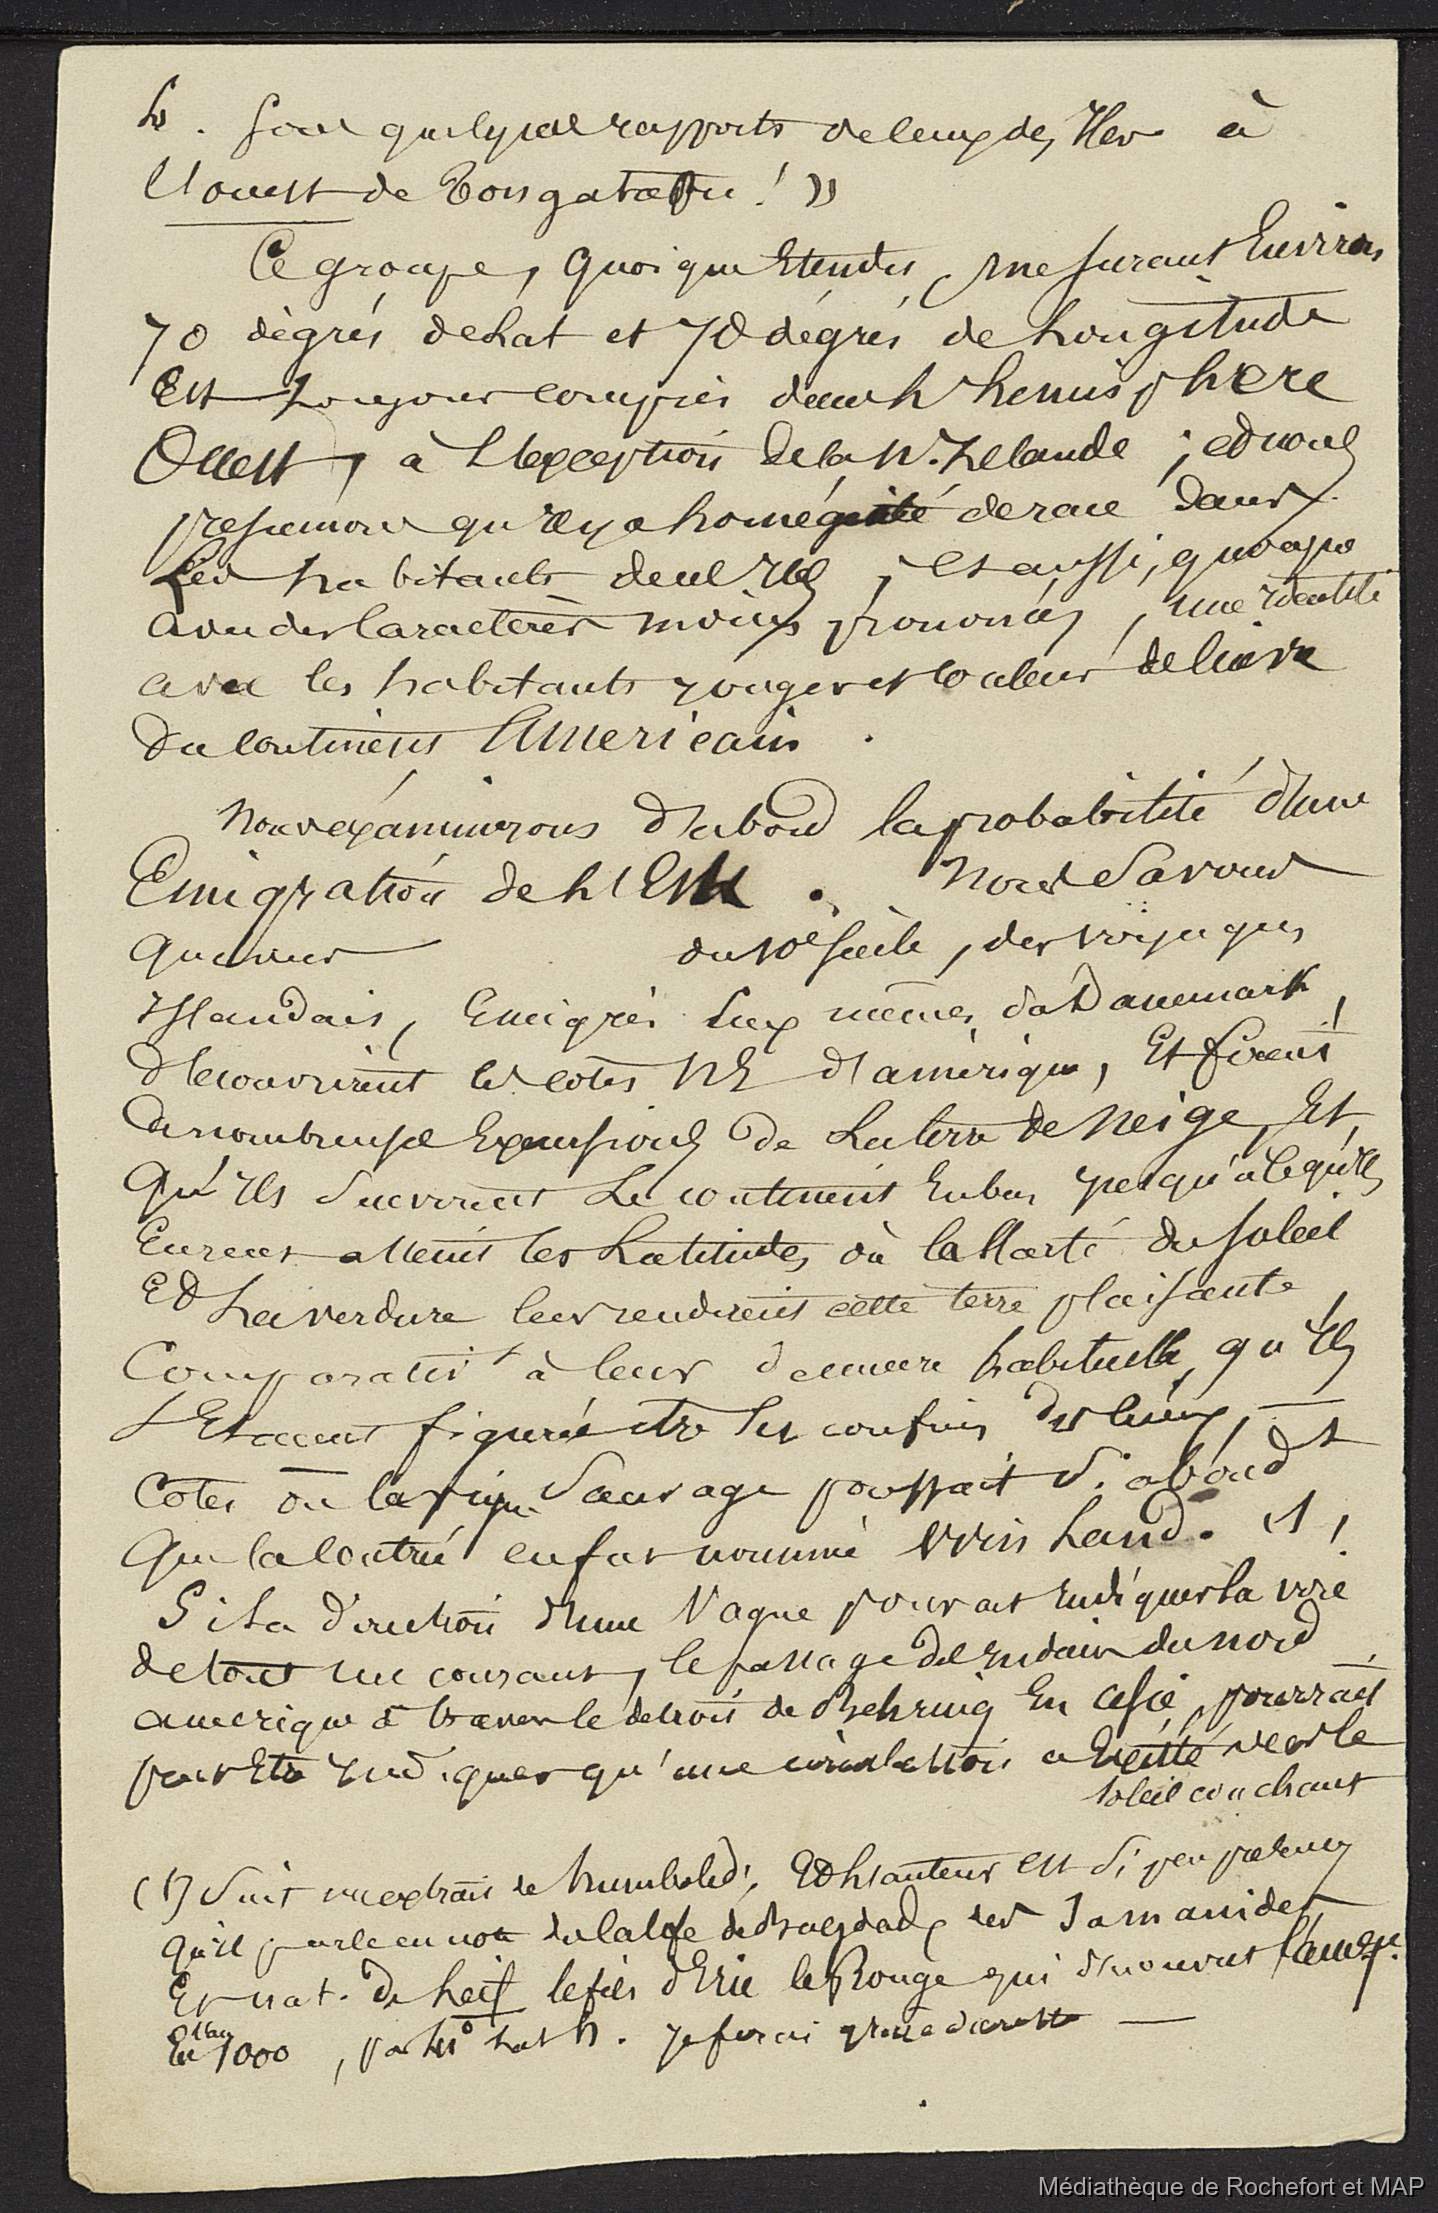 4. sous quelques rapports de leurs des Iles à
l'ouest de Tongatabou ! »
Ce groupe, quoique Etendu, mesurant Environ
70 dégrés de Lat et 70 dégrés de Longitude
Est toujours compris dans l'hemisphere
Ouest, à l'exception de la N. Zelande ; et nous
presumons qu'il y a homégénité de race dans
Les habitants de ces Iles, et aussi, quoique
avec des caractères moins prononcés, une identité
avec les habitants rouges et couleur de cuivre
du continent Americain.
Nous examinerons d'abord la probabilité d'une
Emigration de l'Est. Nous Savons
que vers du 10e siècle, des voyageurs
Islandais, Emigrés Eux mêmes du Danemark,
découvrirent les cotes NE d'amérique, Et firent
de nombreuse Expursions de La terre de Neige, Et
qu'Ils suivirent Le continent En bas jusqu'à ce qu'Ils
Eurent atteint les Latitudes où la clarté du soleil
Et La verdure leur rendirent cette terre plaisante
Comparativt à leur demeure habituelle, qu'Ils
s'Etaient figuré être les confins des lieux,
Cotes où la vigne Sauvage poussait si abondt
Que la contrée en fut nommé Win Land. (1)
Si La direction d'une Vague pouvait Indiquer la voie
de tout un courant, le passage des Indiens du nord
amerique à travers le detroit de Behring En asie, pourrait
peut Etre Indiquer qu'une circulation a Existé vers le
soleil couchant
(1) Suit un extrait de humboldt, Et l'auteur est si peu
qu'il parle en note du calife de Bagdad, des Samanides
Et nat. de Leif le fils d'Eric le Rouge qui découvrit l'amerqe.
En l'an 1000, par Lat N. je ferai grace du reste
Médiathèque de Rochefort et MAP